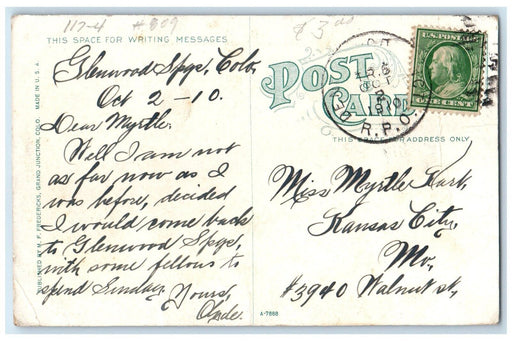 117-4 #809
£3 00
THIS SPACE FOR WRITING MESSAGES
Glenwood Spgs, Colo,
Oct 2-10.
Dear Myrtle:
Well I am not
as far now as I
was before, decided
I would come back
to Glenwood Spgs,
with some fellows to
spend Sunday.
Yours,
Clyde.
PUBLISHED BY M. F. FREDERICKS, GRAND JUNCTION, COLO. MADE IN U.S.A.
POST CARD
R.P.O.
U.S. POSTAGE
ONE CENT
THIS SPACE FOR ADDRESS ONLY
Miss Myrtle
Kansas City,
Mo,
#3940 Walnut st,
A-7868